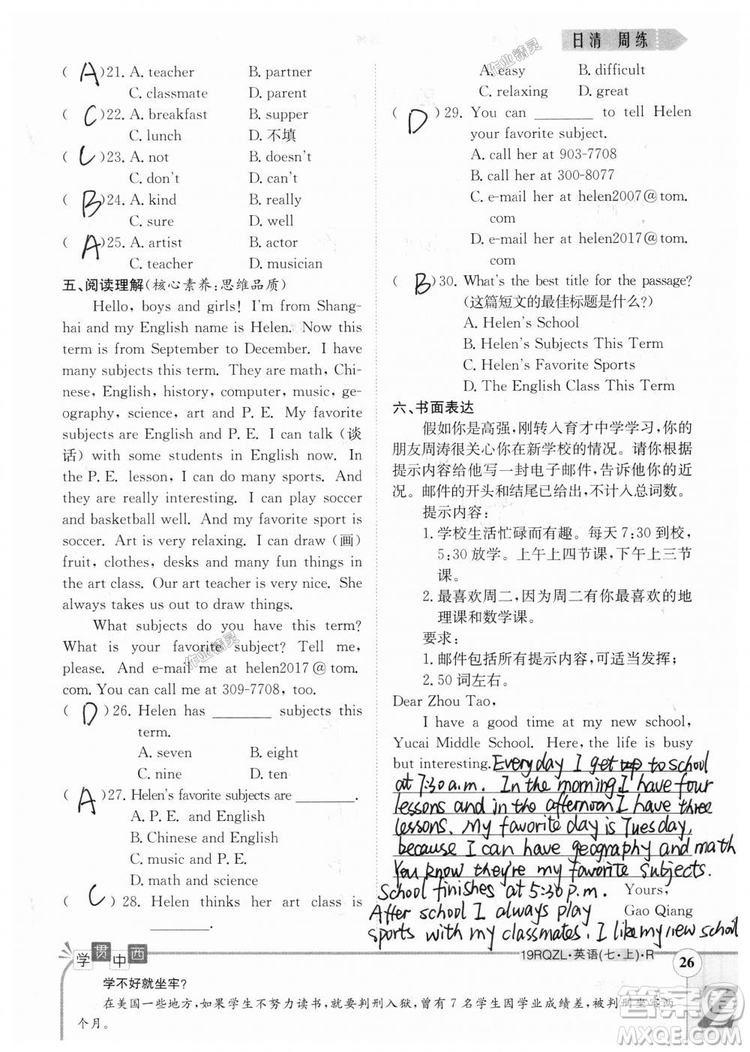 日清 周练
( A )21. A. teacher B. partner
C. classmate D. parent
( C )22. A. breakfast B. supper
C. lunch D. 不填
( C )23. A. not B. doesn't
C. don't D. can't
( B )24. A. kind B. really
C. sure D. well
( A )25. A. artist B. actor
C. teacher D. musician
五、阅读理解(核心素养:思维品质)
Hello, boys and girls! I'm from Shang-
hai and my English name is Helen. Now this
term is from September to December. I have
many subjects this term. They are math, Chi-
nese, English, history, computer, music, ge-
ography, science, art and P. E. My favorite
subjects are English and P. E. I can talk (谈
话) with some students in English now. In
the P. E. lesson, I can do many sports. And
they are really interesting. I can play soccer
and basketball well. And my favorite sport is
soccer. Art is very relaxing. I can draw (画)
fruit, clothes, desks and many fun things in
the art class. Our art teacher is very nice. She
always takes us out to draw them.
What subjects do you have this term?
What is your favorite subject? Tell me,
please. And e-mail me at helen2017@tom.
com. You can call me at 309-7708, too.
( D )26. Helen has ________ subjects this
term.
A. seven B. eight
C. nine D. ten
( A )27. Helen's favorite subjects are ________.
A. P. E. and English
B. Chinese and English
C. music and P. E.
D. math and science
( C )28. Helen thinks her art class is
________.
A. easy B. difficult
C. relaxing D. great
( D )29. You can ________ to tell Helen
your favorite subject.
A. call her at 903-7708
B. call her at 309-7706
C. e-mail her at helen2007@tom.
com
D. e-mail her at helen2017@tom.
com
( B )30. What's the best title for the passage?
(这篇短文的最佳标题是什么?)
A. Helen's School
B. Helen's Subjects This Term
C. Helen's Favorite Sports
D. The English Class This Term
六、书面表达
假如你是高强,刚转入育才中学学习,你的
朋友周涛很关心你在新学校的情况。请你根据
提示内容给他写一封电子邮件,告诉他你的近
况。邮件的开头和结尾已给出,不计入总词数。
提示内容:
1. 学校生活忙碌而有趣。每天7:30到校,
5:30放学。上午上四节课,下午上三节
课。
2. 最喜欢周二,因为周二有我最喜欢的地
理课和数学课。
要求:
1. 邮件包括所有提示内容,可适当发挥;
2. 50词左右。
Dear Zhou Tao,
I have a good time at my new school,
Yucai Middle School. Here, the life is busy
but interesting. Every day I get to school
at 7:30 a.m. In the morning I have four
lessons and in the afternoon I have three
lessons. My favorite day is Tuesday,
because I can have geography and math
You know they're my favorite subjects.
School finishes at 5:30 p.m. Yours,
After school I always play Gao Qiang
sports with my classmates. I like my new school
学贯中西
19RQZL·英语(七·上)·R 26
学不好就坐牢?
在美国一些地方,如果学生不努力读书,就要判刑入狱,曾有7名学生因学业成绩差,被判刑坐牢两
个月。
作业精灵
作业精灵
答案圈